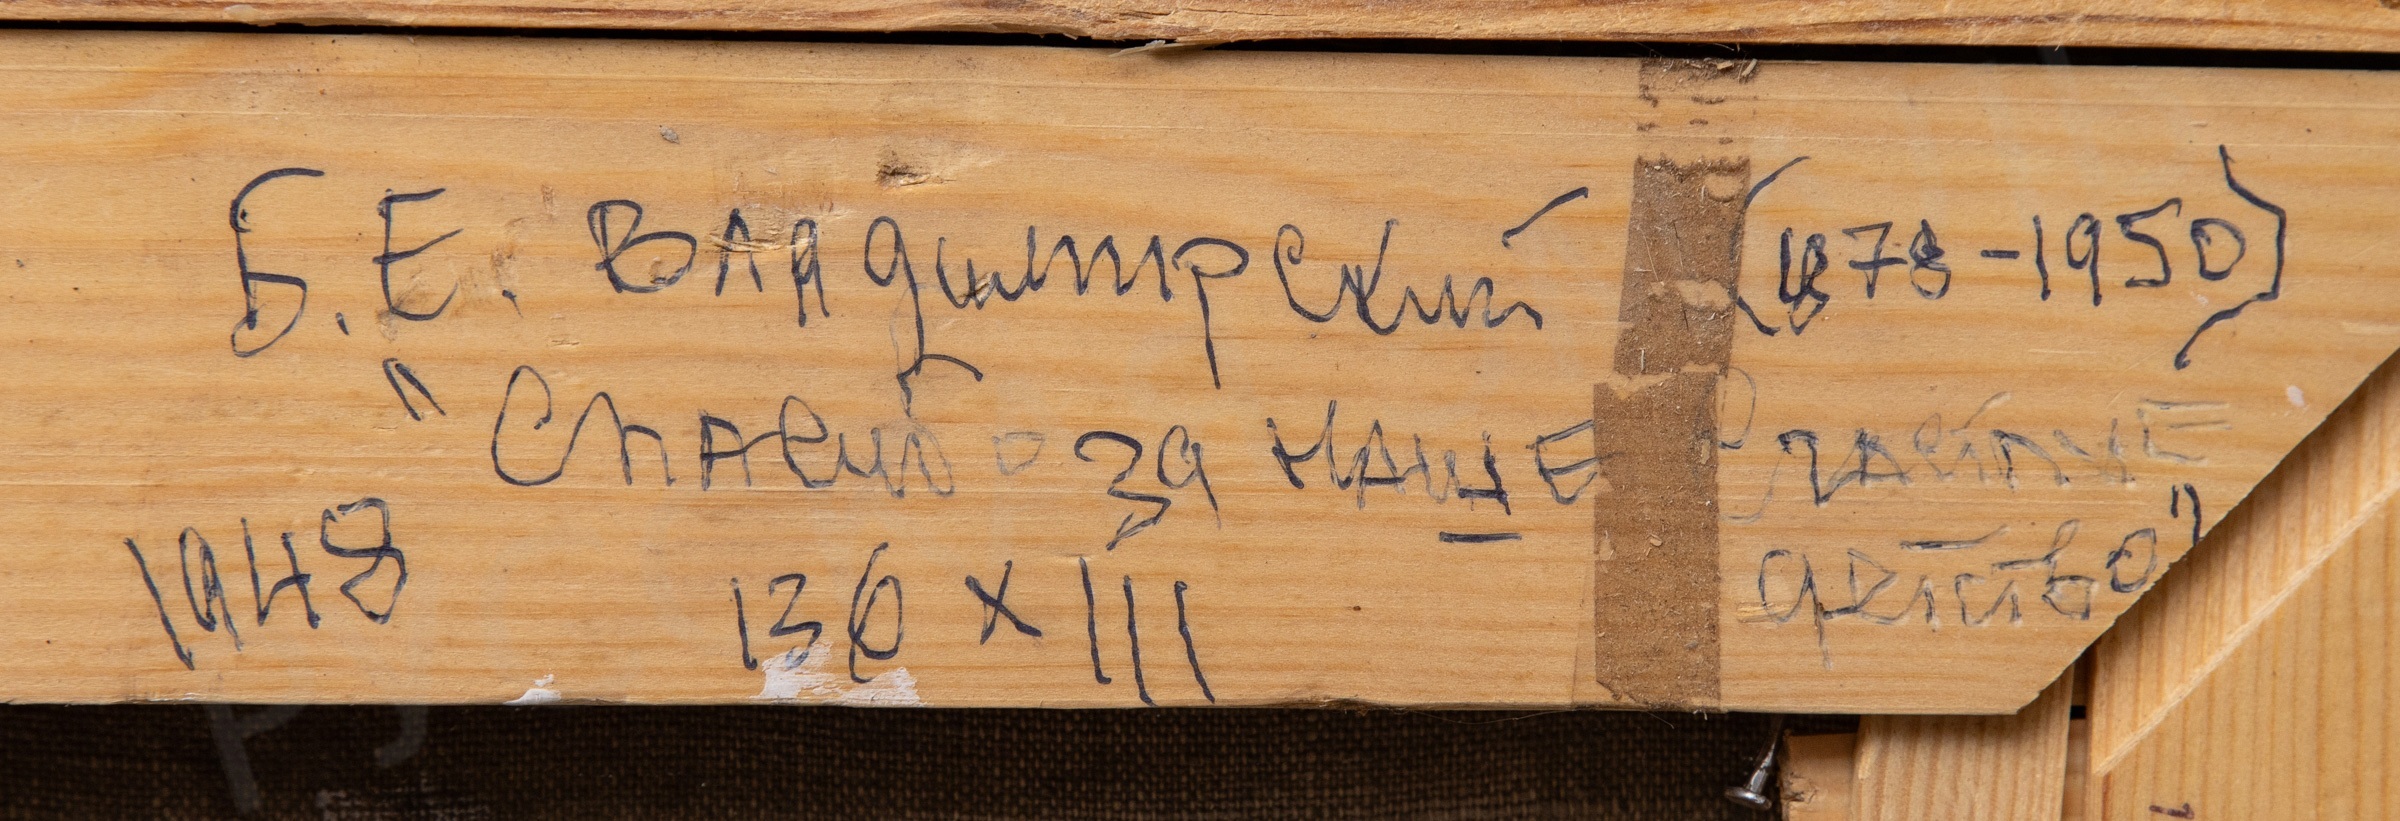 Б.Е. Владимирский (1878-1950)
"Спасибо за наше счастливое
детство"
1948 136 х 111